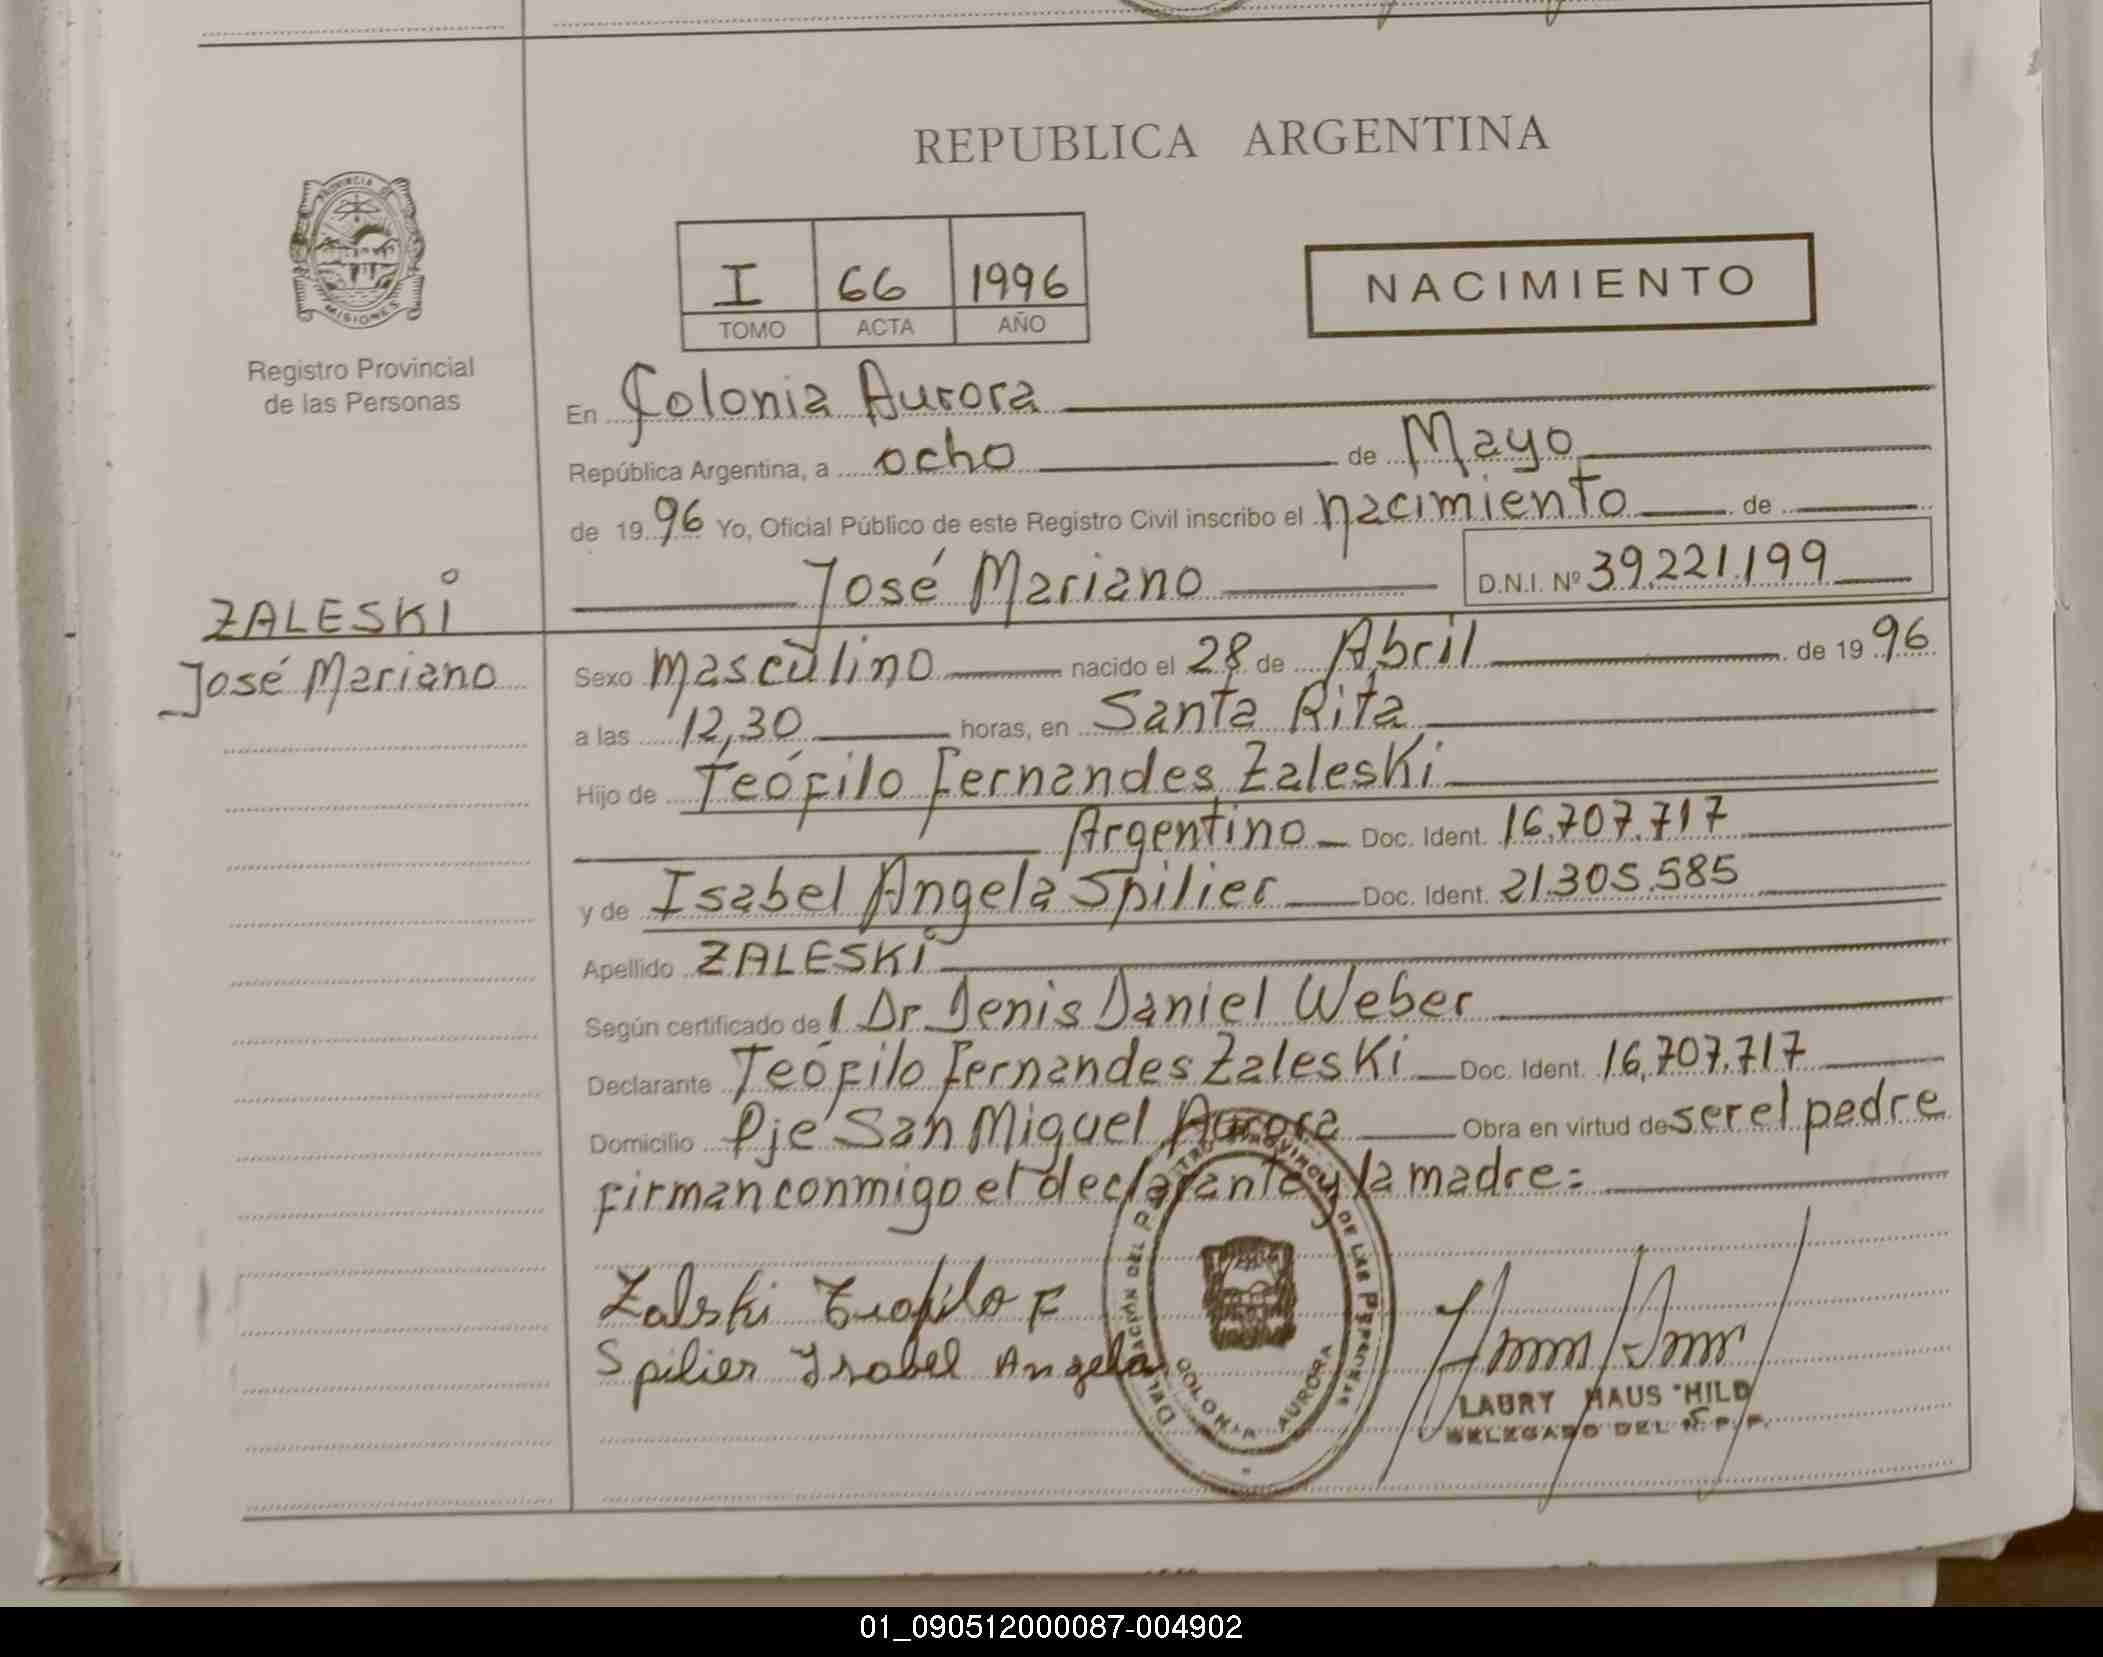 REPUBLICA ARGENTINA
PROVINCIA DE
MISIONES
Registro Provincial
de las Personas
I 66 1996
TOMO ACTA AÑO
NACIMIENTO
En Colonia Aurora
República Argentina, a ocho de Mayo
de 1996 Yo, Oficial Público de este Registro Civil inscribo el nacimiento de
José Mariano D.N.I. Nº 39.221.199
ZALESKI
José Mariano
Sexo masculino nacido el 28 de Abril de 1996
a las 12,30 horas, en Santa Rita
Hijo de Teófilo Fernandes Zaleski
Argentino Doc. Ident. 16.707.717
y de Isabel Angela Spilier Doc. Ident. 21.305.585
Apellido ZALESKI
Según certificado del Dr Denis Daniel Weber
Declarante Teófilo Fernandes Zaleski Doc. Ident. 16,707.717
Domicilio Pje San Miguel Aurora Obra en virtud de ser el padre
firman conmigo el declarante y la madre=
Zalski Teofilo F
Spilier Ysabel Angela
DE LAS PERSONAS
COLONIA AURORA
LAURY HAUS HILD
DELEGADO DEL R.P.P.
01_090512000087-004902